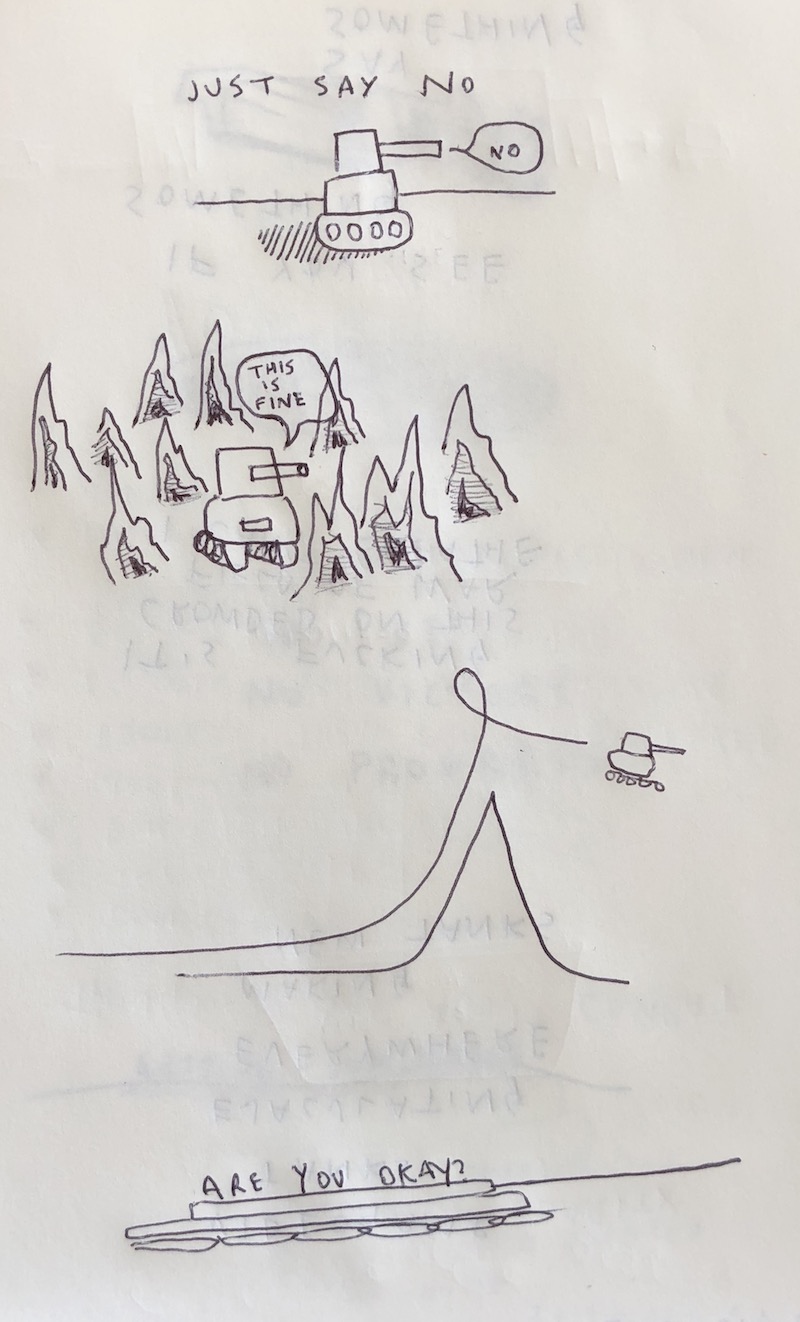 JUST SAY NO
NO
THIS
IS
FINE
ARE YOU OKAY?